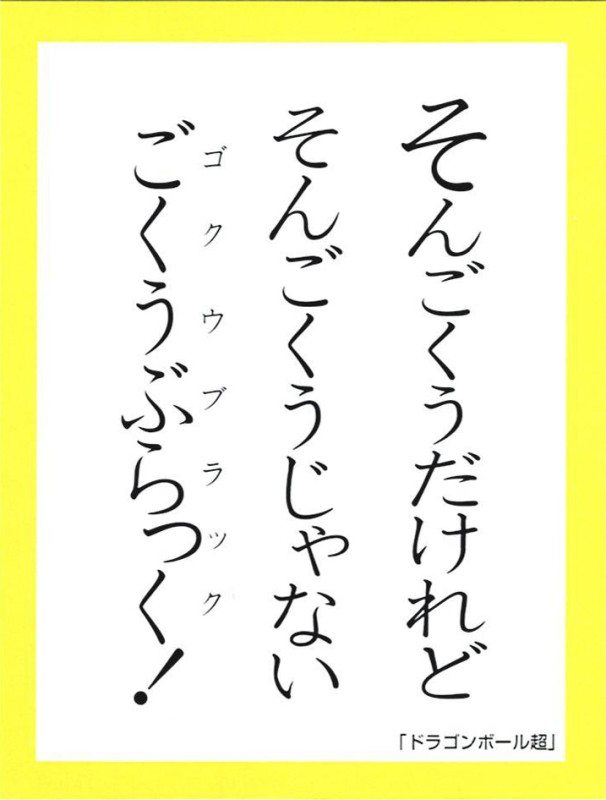 そんごくうだけれど
そんごくうじゃない
ごくうぶらっく！
ゴクウブラック
「ドラゴンボール超」